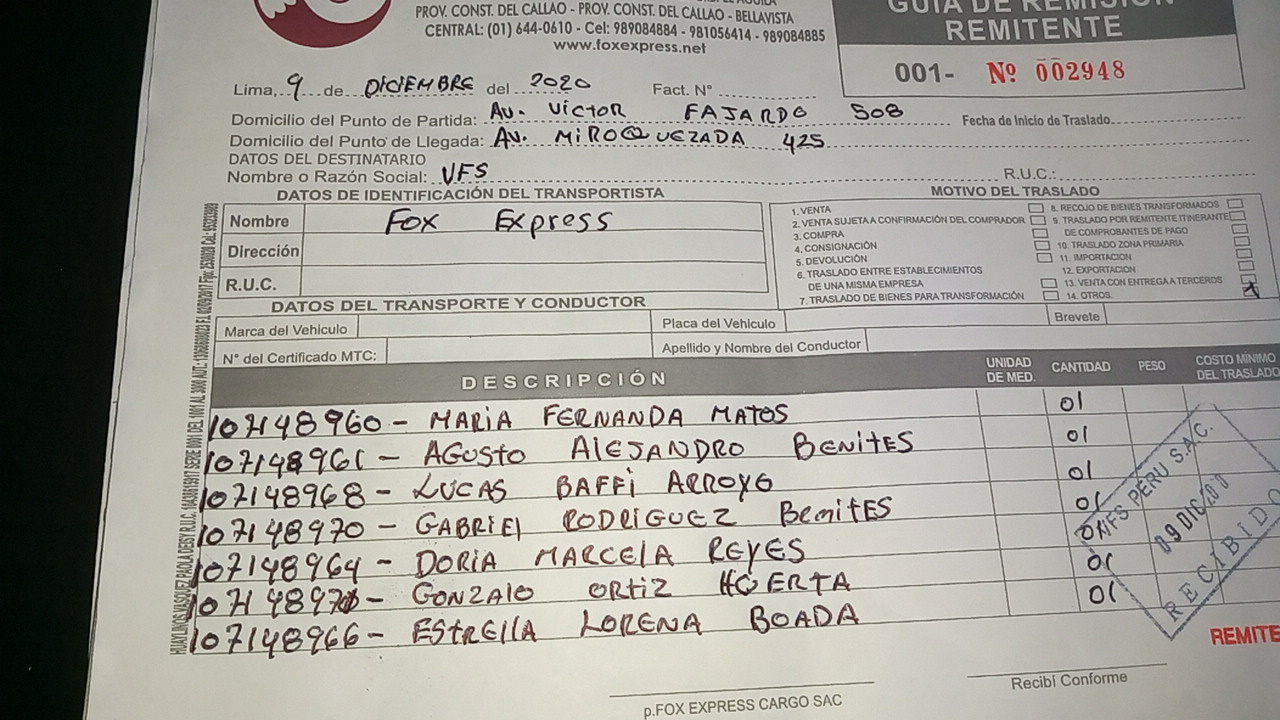 PROV. CONST. DEL CALLAO - PROV. CONST. DEL CALLAO - BELLAVISTA
CENTRAL: (01) 644-0610 - Cel: 989084884 - 981056414 - 989084885
www.foxexpress.net
GUIA DE REMISION
REMITENTE
001- Nº 002948
Lima, 9 de DICIEMBRE del 2020 Fact. N°
Domicilio del Punto de Partida: Av. Victor FAJARDO 508 Fecha de Inicio de Traslado
Domicilio del Punto de Llegada: Av. MIROQUEZADA 425
DATOS DEL DESTINATARIO
Nombre o Razón Social: VFS R.U.C.:
DATOS DE IDENTIFICACIÓN DEL TRANSPORTISTA
Nombre Fox Express
Dirección
R.U.C.
MOTIVO DEL TRASLADO
1. VENTA
2. VENTA SUJETA A CONFIRMACIÓN DEL COMPRADOR
3. COMPRA
4. CONSIGNACIÓN
5. DEVOLUCIÓN
6. TRASLADO ENTRE ESTABLECIMIENTOS
DE UNA MISMA EMPRESA
7. TRASLADO DE BIENES PARA TRANSFORMACIÓN
8. RECOJO DE BIENES TRANSFORMADOS
9. TRASLADO POR REMITENTE ITINERANTE
DE COMPROBANTES DE PAGO
10. TRASLADO ZONA PRIMARIA
11. IMPORTACION
12. EXPORTACION
13. VENTA CON ENTREGA A TERCEROS
14. OTROS X
DATOS DEL TRANSPORTE Y CONDUCTOR
Marca del Vehiculo Placa del Vehiculo Brevete
N° del Certificado MTC: Apellido y Nombre del Conductor
DESCRIPCIÓN UNIDAD DE MED. CANTIDAD PESO COSTO MINIMO DEL TRASLADO
107148960 - MARIA FERNANDA MATOS 01
107148961 - AGUSTO ALEJANDRO BENITES 01
107148968 - LUCAS BAFFI ARROYO 01
107148970 - GABRIEL RODRIGUEZ BENITES 01
107148964 - DORIA MARCELA REYES 01
107148971 - GONZALO ORTIZ HUERTA 01
107148966 - ESTRELLA LORENA BOADA 01
VFS PERU S.A.C.
09 DIC/20
RECIBIDO
REMITE
p.FOX EXPRESS CARGO SAC
Recibí Conforme